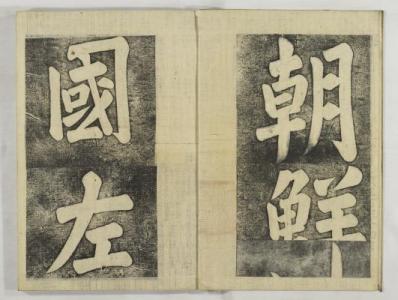 朝鮮
國左